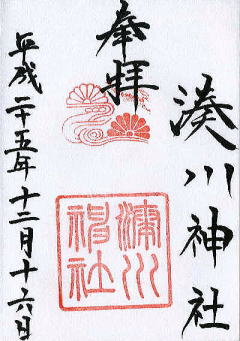 奉拝
湊川神社
湊川神社
平成二十五年十二月十六日